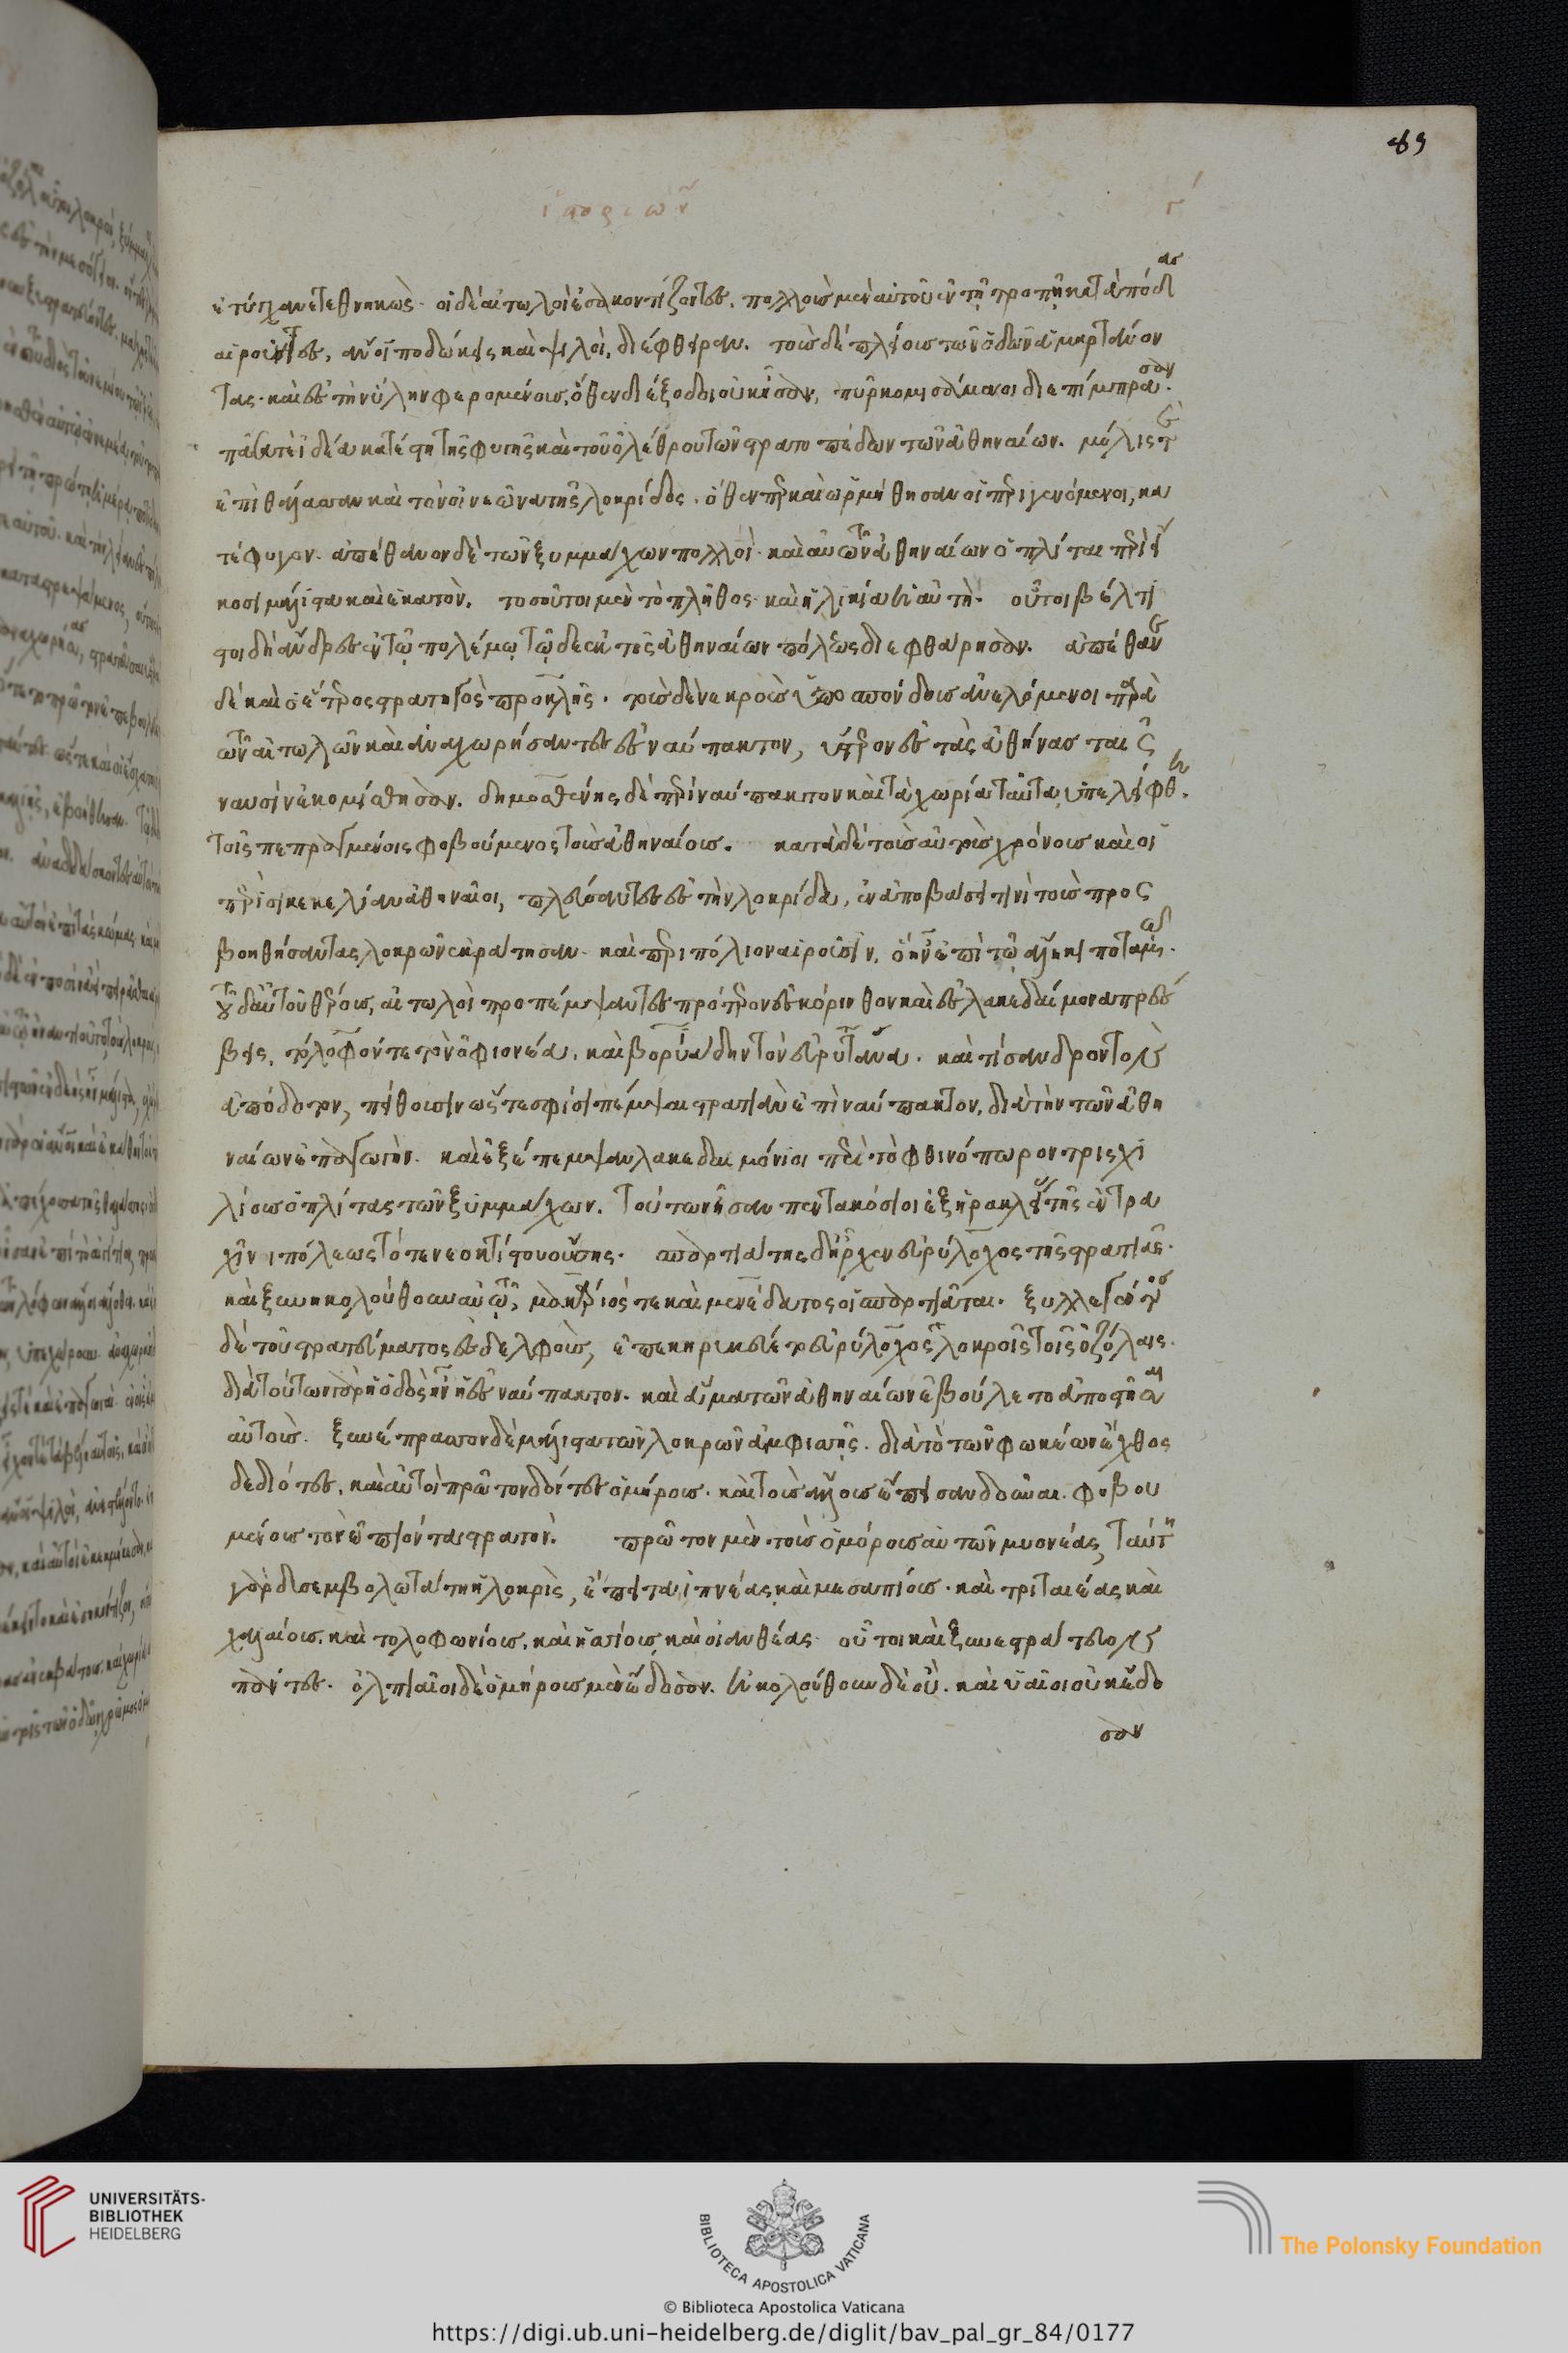 ἱστοριῶν γʹ
89
ἐτύγχανε τεθνηκώς· οἱ δὲ αἰτωλοὶ ἐσακοντίζοντες, πολλοὺς μὲν αὐτοῦ ἐν τῇ τροπῇ κατὰ πόδας
αἱροῦντες, ἄνοι ποδώκεις καὶ ψιλοὶ, διέφθειραν. τοὺς δὲ πλείους τῶν ὁδῶν ἁμαρτάνον
τας· καὶ ἐς τὴν ὕλην φερομένους, ὅθεν διέξοδοι οὐκ ἦσαν, πῦρ κομισάμενοι διεπίμπρασαν.
πᾶσά τε ἰδέα κατέστη τῆς φυγῆς καὶ τοῦ ὀλέθρου τῶν στρατοπέδων τῶν ἀθηναίων. μόλις τε
ἐπὶ θάλασσαν καὶ τὸν οἰνεῶνα τῆς λοκρίδος, ὅθεν περ καὶ ὡρμήθησαν οἱ περιγενόμενοι, κα
τέφυγον. ἀπέθανον δὲ τῶν ξυμμάχων πολλοί· καὶ αὐτῶν ἀθηναίων ὁπλίται περὶ εἴ
κοσι μάλιστα καὶ ἑκατὸν. τοσοῦτοι μὲν τὸ πλῆθος καὶ ἡλικία ἡ αὐτή· οὗτοι βέλτι
στοι δὴ ἄνδρες ἐν τῷ πολέμῳ τῷδε ἐκ τῆς ἀθηναίων πόλεως διεφθάρησαν. ἀπέθανε
δὲ καὶ ὁ ἕτερος στρατηγὸς προκλῆς. τοὺς δὲ νεκροὺς ὑποσπόνδους ἀνελόμενοι παρὰ
τῶν αἰτωλῶν καὶ ἀναχωρήσαντες ἐς ναύπακτον, ὕστερον ἐς τὰς ἀθήνας ταῖς
ναυσὶν ἐκομίσθησαν. δημοσθένης δὲ περὶ ναύπακτον καὶ τὰ χωρία ταῦτα ὑπελείφθη.
τοῖς πεπραγμένοις φοβούμενος τοὺς ἀθηναίους. κατὰ δὲ τοὺς αὐτοὺς χρόνους καὶ οἱ
περὶ σικελίαν ἀθηναῖοι, πλεύσαντες ἐς τὴν λοκρίδα, ἐν ἀποβάσει τινὶ τοὺς προς
βοηθήσαντας λοκρῶν ἐκράτησαν. καὶ περιπόλιον αἱροῦσιν, ὃ ἦν ἐπὶ τῷ ἄληκι ποταμῷ.
τοῦ δ' αὐτοῦ θέρους, αἰτωλοὶ προπέμψαντες πρότερον ἐς κόρινθον καὶ ἐς λακεδαίμονα πρέσ
βεις, τόλοφόν τε τὸν ὀφιονέα, καὶ βοριάδην τὸν εὐρυτᾶνα. καὶ τίσανδρον τὸν
ἀπόδοτον, πείθουσιν ὥστε σφίσι πέμψαι στρατιὰν ἐπὶ ναύπακτον, διὰ τὴν τῶν ἀθη
ναίων ἐπαγωγήν. καὶ ἐξέπεμψαν λακεδαιμόνιοι περὶ τὸ φθινόπωρον τρισχι
λίους ὁπλίτας τῶν ξυμμάχων. τούτων ἦσαν πεντακόσιοι ἐξ ἡρακλείας τῆς ἐν τρα
χῖνι πόλεως τότε νεοκτίστου οὔσης. σπαρτιάτης δ' ἦρχεν εὐρύλοχος τῆς στρατιᾶς.
καὶ ξυνηκολούθουν αὐτῷ, μακάριός τε καὶ μενέδατος οἱ σπαρτιᾶται. ξυλλεγέντος
δὲ τοῦ στρατεύματος ἐς δελφοὺς, ἐπεκηρυκεύετο εὐρύλοχος λοκροῖς τοῖς ὀζόλαις.
διὰ τούτων γὰρ ἡ ὁδὸς ἦν ἡ ἐς ναύπακτον. καὶ ἅμα τῶν ἀθηναίων ἐβούλετο ἀποστῆσαι
αὐτούς. ξυνέπρασσον δὲ μάλιστα τῶν λοκρῶν ἀμφισσῆς. διὰ τὸ τῶν φωκέων ἔχθος
δεδιότες, καὶ αὐτοὶ πρῶτον δόντες ὁμήρους. καὶ τοὺς ἄλλους ἔπεισαν δοῦναι. φοβου
μένους τὸν ἐπιόντα στρατόν. πρῶτον μὲν τοὺς ὁμόρους αὐτῶν μυονέας, ταύτῃ
γὰρ δυσεμβολώτατη ἡ λοκρὶς, ἔπειτα ἰπνέας καὶ μεσαπίους. καὶ τριταιέας καὶ
χαλαίους. καὶ τολοφωνίους, καὶ ἡσσίους καὶ οἰανθέας. οὗτοι καὶ ξυνεστράτευον
πάντες. ὀλπαῖοι δὲ ὁμήρους μὲν ἔδοσαν. ἠκολούθουν δὲ οὔ. καὶ ὑαῖοι οὐκ ἔδο
σαν
UNIVERSITÄTS-
BIBLIOTHEK
HEIDELBERG
BIBLIOTECA APOSTOLICA VATICANA
The Polonsky Foundation
© Biblioteca Apostolica Vaticana
https://digi.ub.uni-heidelberg.de/diglit/bav_pal_gr_84/0177